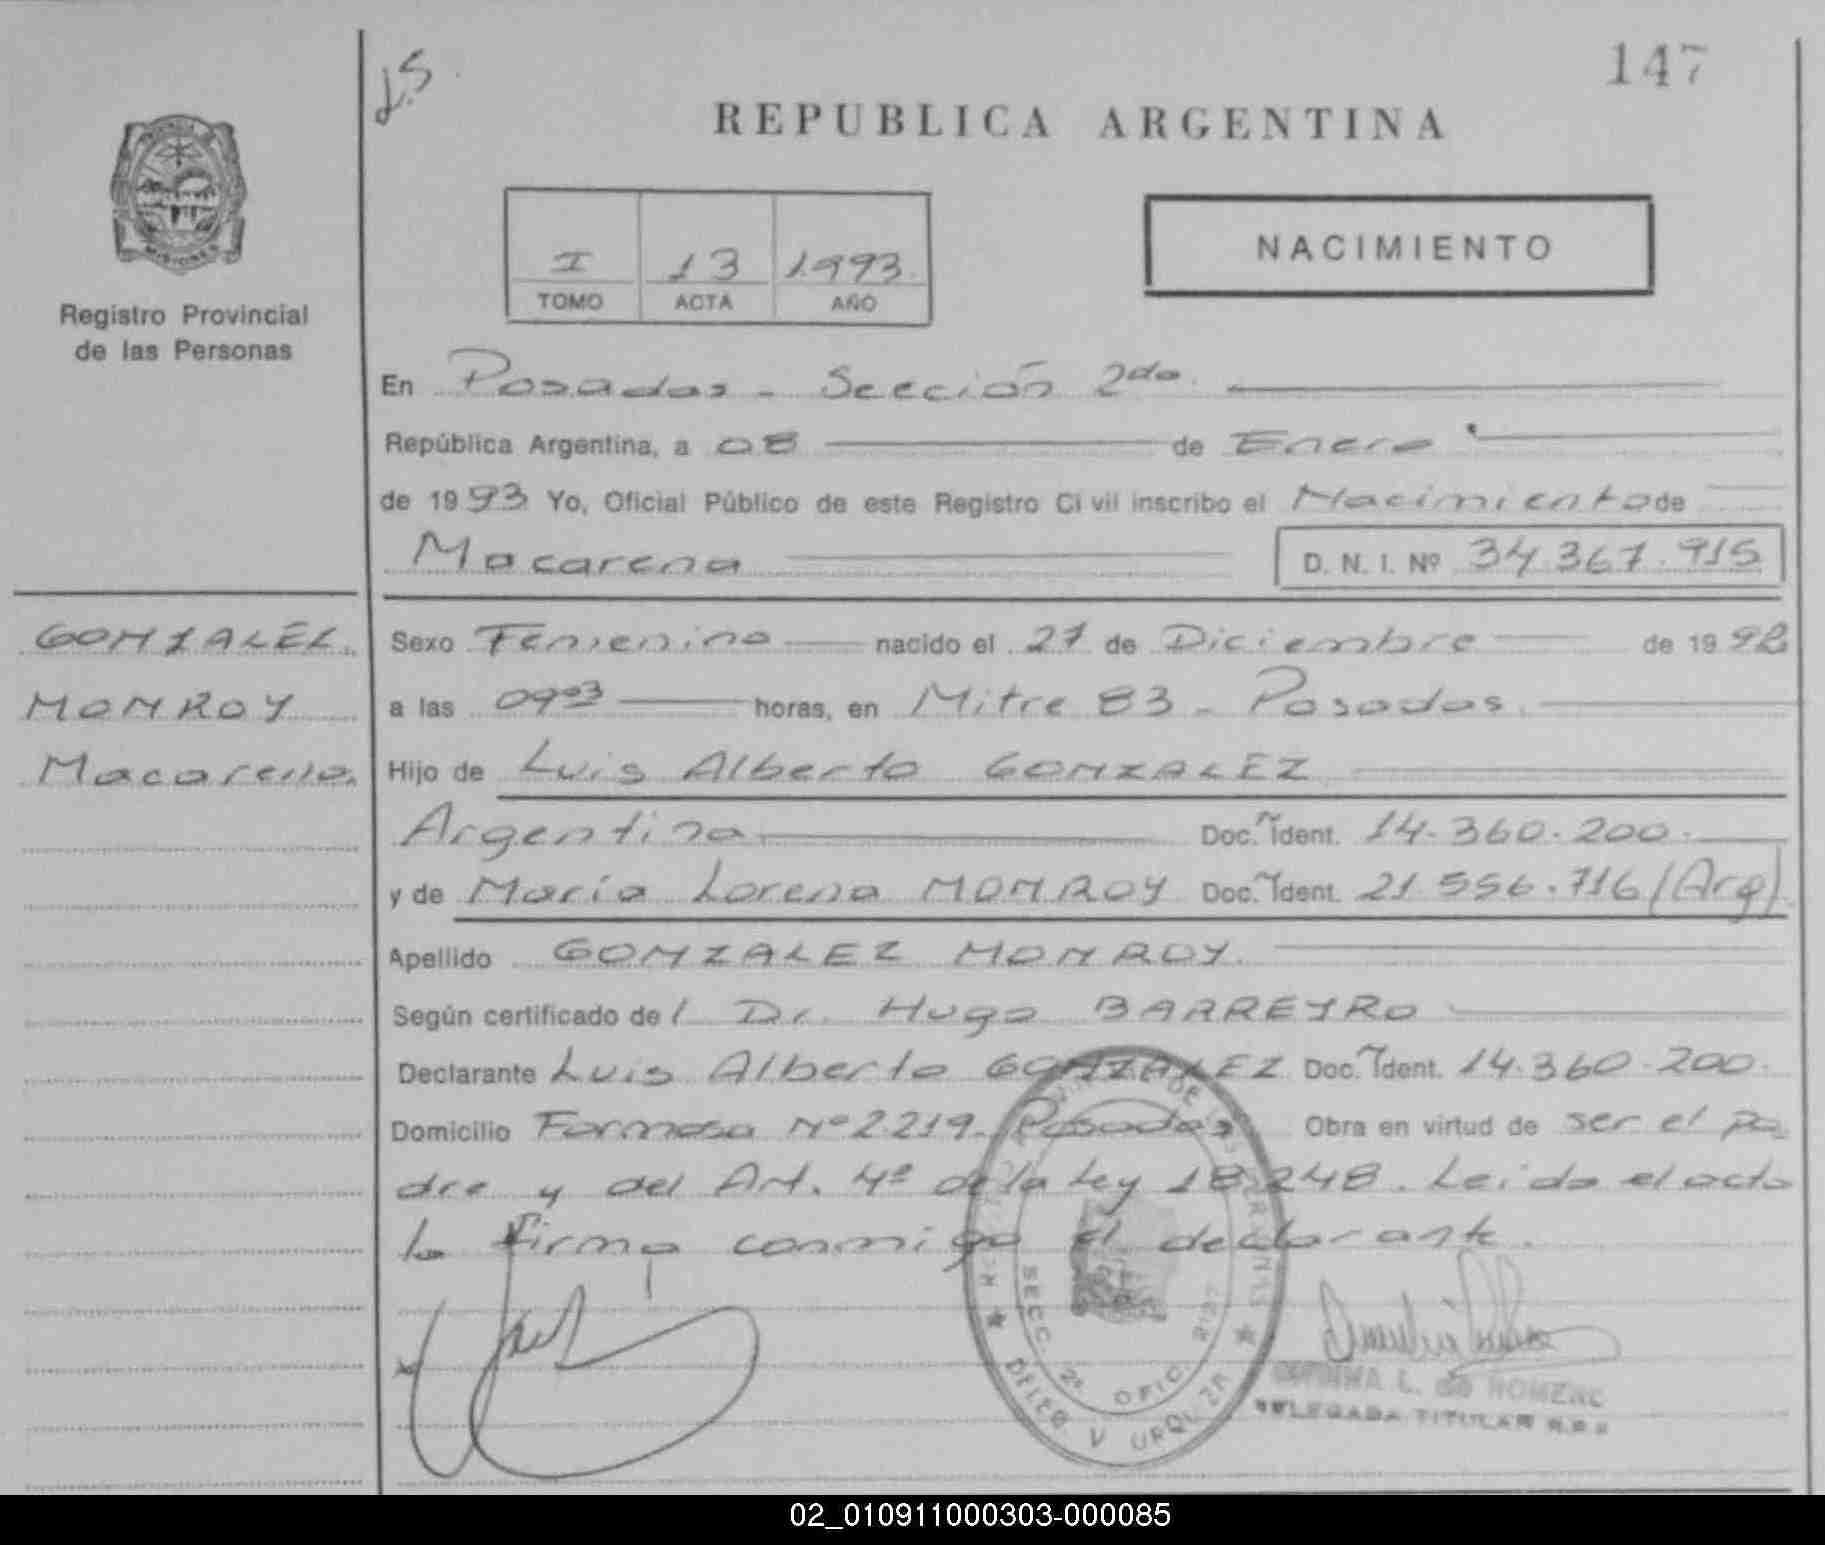 L.S
147
REPUBLICA ARGENTINA
MISIONES
Registro Provincial
de las Personas
I 13 1993
TOMO ACTA AÑO
NACIMIENTO
En Posadas - Sección 2da.
República Argentina, a 08 de Enero
de 1993 Yo, Oficial Público de este Registro Civil inscribo el Nacimiento de
Macarena D. N. I. Nº 34.367.915
GONZALEZ
MONROY
Macarena
Sexo Femenino nacido el 27 de Diciembre de 1992
a las 09 03 horas, en Mitre 83 - Posadas.
Hijo de Luis Alberto GONZALEZ
Argentina Doc. Ident. 14.360.200.
y de María Lorena MONROY Doc. Ident. 21.556.716 (Arg).
Apellido GONZALEZ MONROY.
Según certificado del Dr. Hugo BARREYRO
Declarante Luis Alberto GONZALEZ Doc. Ident. 14.360.200.
Domicilio Formosa Nº 2219. Posadas Obra en virtud de ser el pa
dre y del Art. 4º de la Ley 18.248. Leída el acta
la firma conmigo el declarante.
SECC. 2ª OFIC.
URQUIZA
L. de ROMERO
DELEGADA TITULAR R.P.P.
02_010911000303-000085